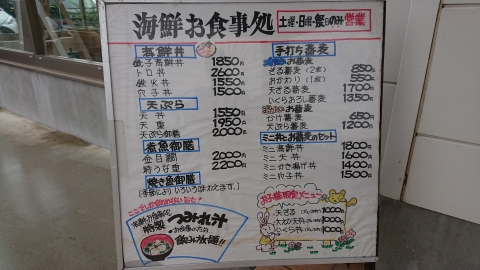 海鮮お食事処 土曜・日曜・祭日のみ営業
海鮮丼
銚子海鮮丼 1850円
トロ丼 2600円
鉄火丼 1550円
穴子丼 1500円
天ぷら
天丼 1550円
天重 1950円
天ぷら御膳 2000円
煮魚御膳
金目鯛 2000円
2200円
焼き魚御膳
(季節によりいろいろ味わえます。)
特製
つみれ汁
お食事の方は
飲み放題!!
手打ち蕎麦
お蕎麦
ざる蕎麦(2枚) 850円
おかわり(1枚) 550円
天ざる蕎麦 1700円
いくらおろし蕎麦 1350円
お蕎麦
かけ蕎麦 650円
天ぷら蕎麦 1200円
ミニ丼とお蕎麦のセット
ミニ海鮮丼 1800円
ミニ天丼 1600円
ミニかき揚げ丼 1400円
ミニ穴子丼 1500円
お子様限定メニュー
天ざる 1000円
1000円
いくら丼 1000円